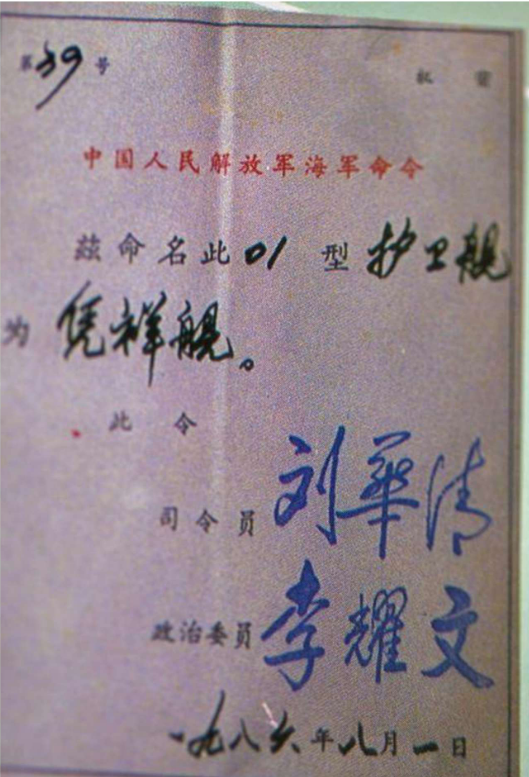 第39号 机密
中国人民解放军海军命令
兹命名此01型护卫舰
为凭祥舰。
此令
司令员 刘华清
政治委员 李耀文
一九八六年八月一日